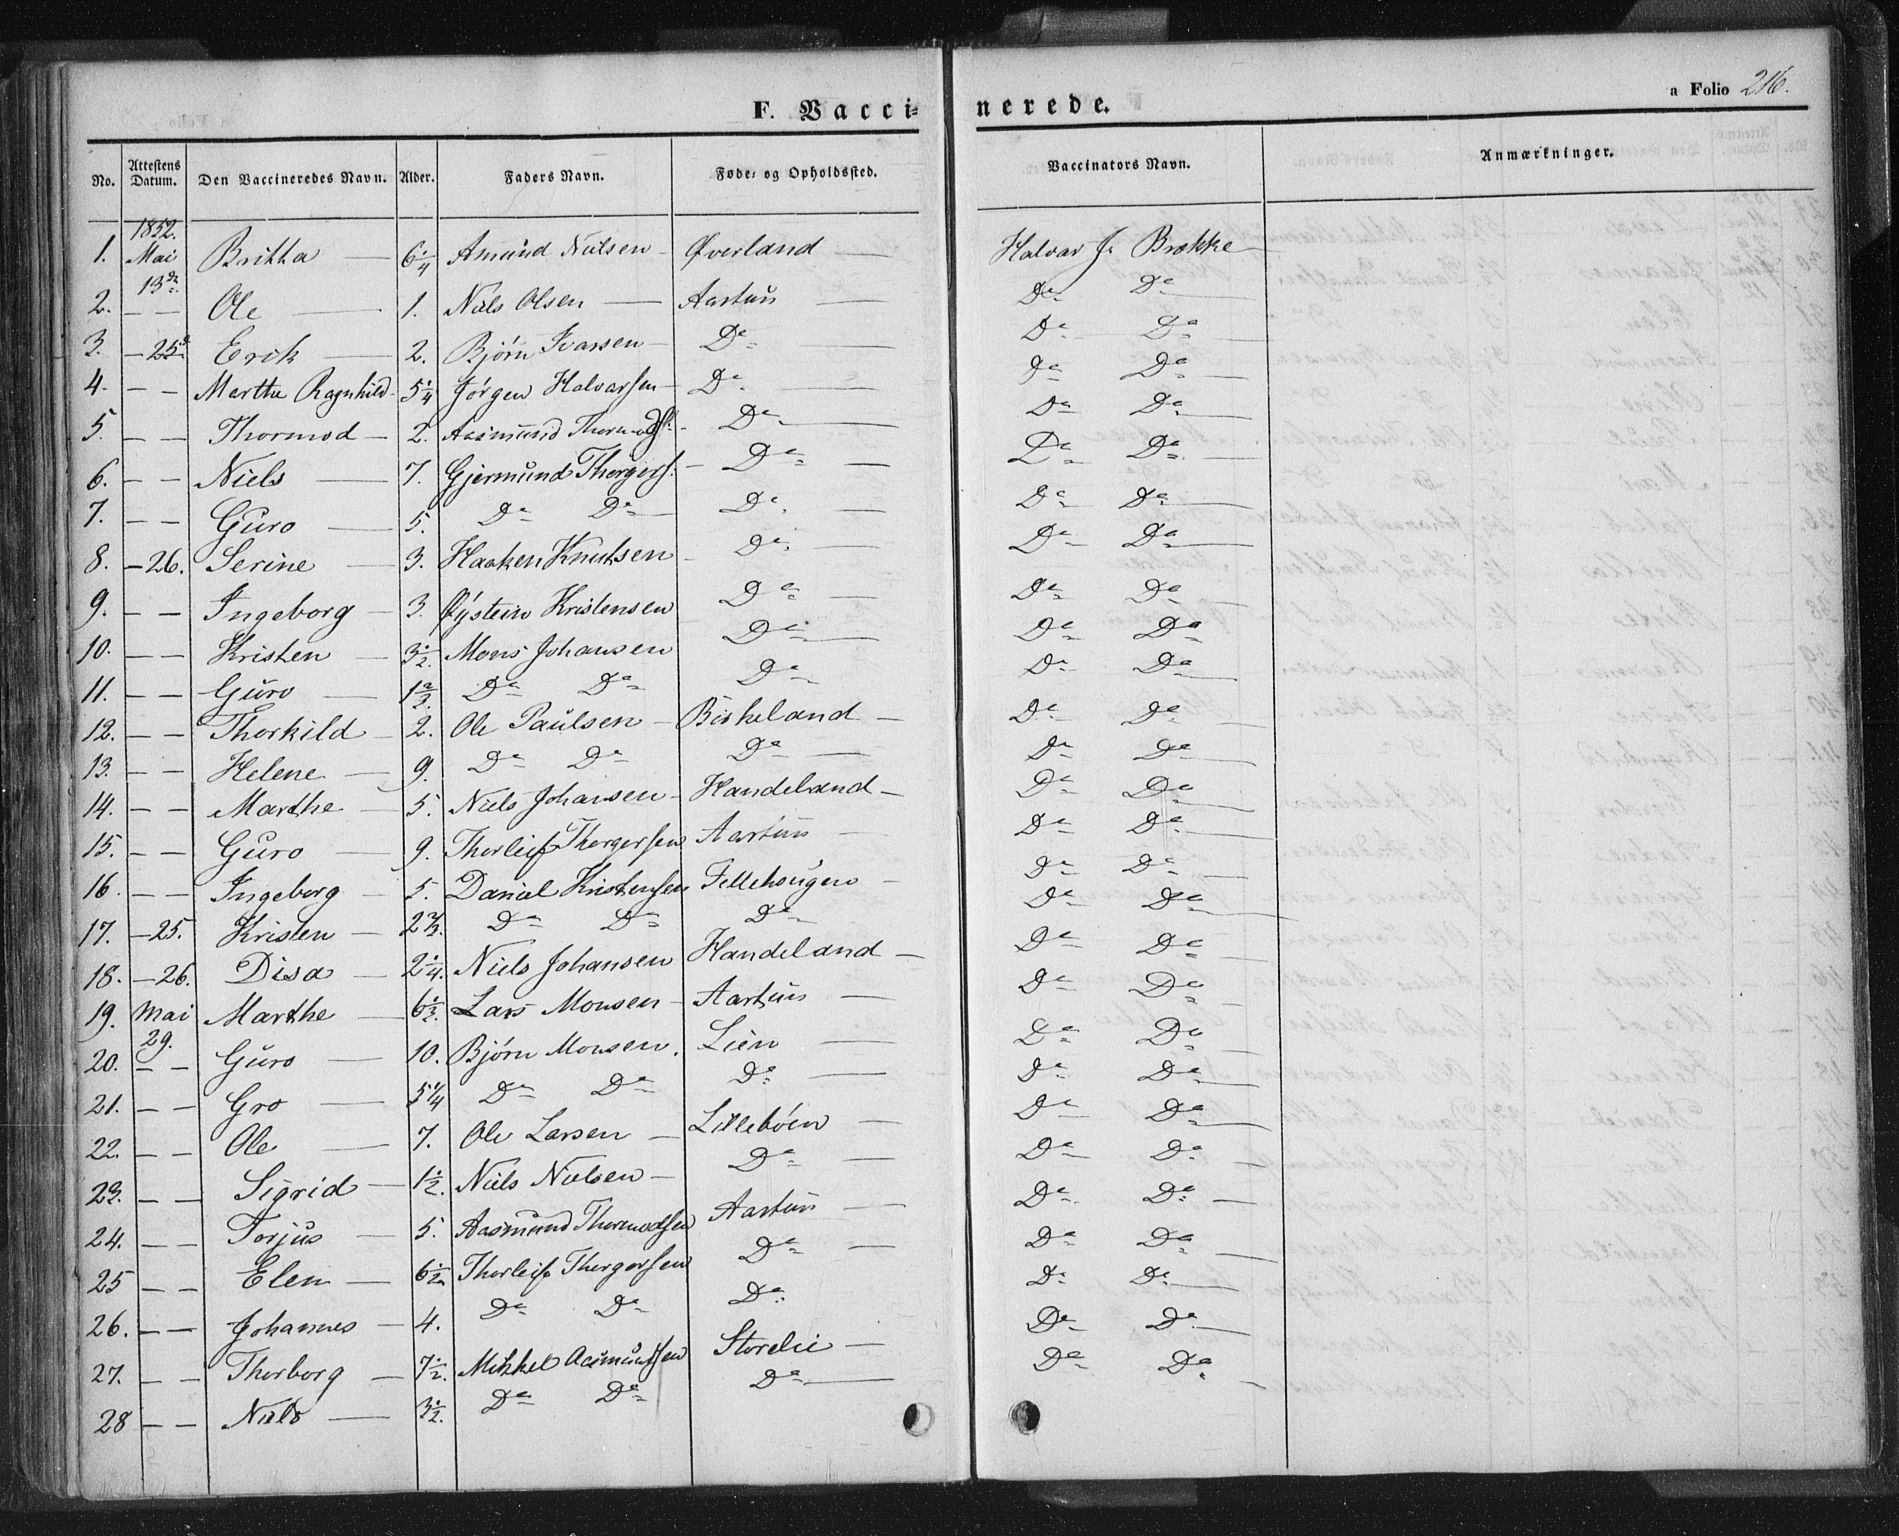 F. Vaccinerede. a Folio 216.
No. Attestens Datum. Den Vaccineredes Navn. Alder. Faders Navn. Føde- og Opholdssted. Vaccinators Navn. Anmærkninger.
1852.
1. Mai 13de Britha 6 1/4 Amund Nielsen Øverland Halvar J. Brække
2. – – Ole 1. Niels Olsen Aartun Do Do
3. – 25d Erik 2. Bjørn Ivarsen Do Do Do
4. – – Marthe Ragnhild 5 1/4 Jørgen Halvarsen Do Do Do
5. – – Thormod 2. Aasmund Thormods. Do Do Do
6. – – Niels 7. Gjermund Thorgers. Do Do Do
7. – – Guro 5. Do Do Do Do Do
8. – 26. Serine 3. Haaken Knutsen Do Do Do
9. – – Ingeborg 3 Øystein Kristensen Do Do Do
10. – – Kristen 3 1/2. Mons Johansen Do Do Do
11. – – Guro 1 2/3. Do Do Do Do Do
12. – – Thorkild 2. Ole Paulsen Birkeland Do Do
13. – – Helene 9. Do Do Do Do Do
14. – – Marthe 5. Niels Johansen Handeland Do Do
15. – – Guro 9. Thorleif Thorgersen Aartun Do Do
16. – – Ingeborg 5. Danial Kristensen Fellehougen Do Do
17. – 25. Kristen 2 2/3. Do Do Do Do Do
18. – 26. Disa 2 1/4. Niels Johansen Handeland Do Do
19. Mai 29. Marthe 6 1/2. Lars Monsen Aartun Do Do
20. – – Guro 10. Bjørn Monsen. Lien Do Do
21. – – Gro 5 1/4 Do Do Do Do Do
22. – – Ole 7. Ole Larsen Lillebøen Do Do
23. – – Sigrid 1 1/2. Niels Nielsen Do Do Do
24. – – Torjus 5. Aasmund Thormodsen Aartun Do Do
25 – – Elen 6 1/2 Thorleif Thorgersen Do Do Do
26. – – Johannes 4. Do Do Do Do Do
27. – – Thorborg 7 1/2. Mikkel Aasmundsen Storelie Do Do
28 – – Niels 3 1/2. Do Do Do Do Do